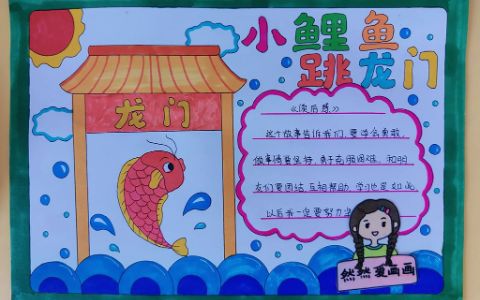 小鲤鱼
跳龙门
龙门
《读后感》
这个故事告诉我们,要学会勇敢,
做事情要坚持,勇于克服困难,和朋
友们要团结互相帮助,学习也是如此,
以后我一定要努力
然然爱画画